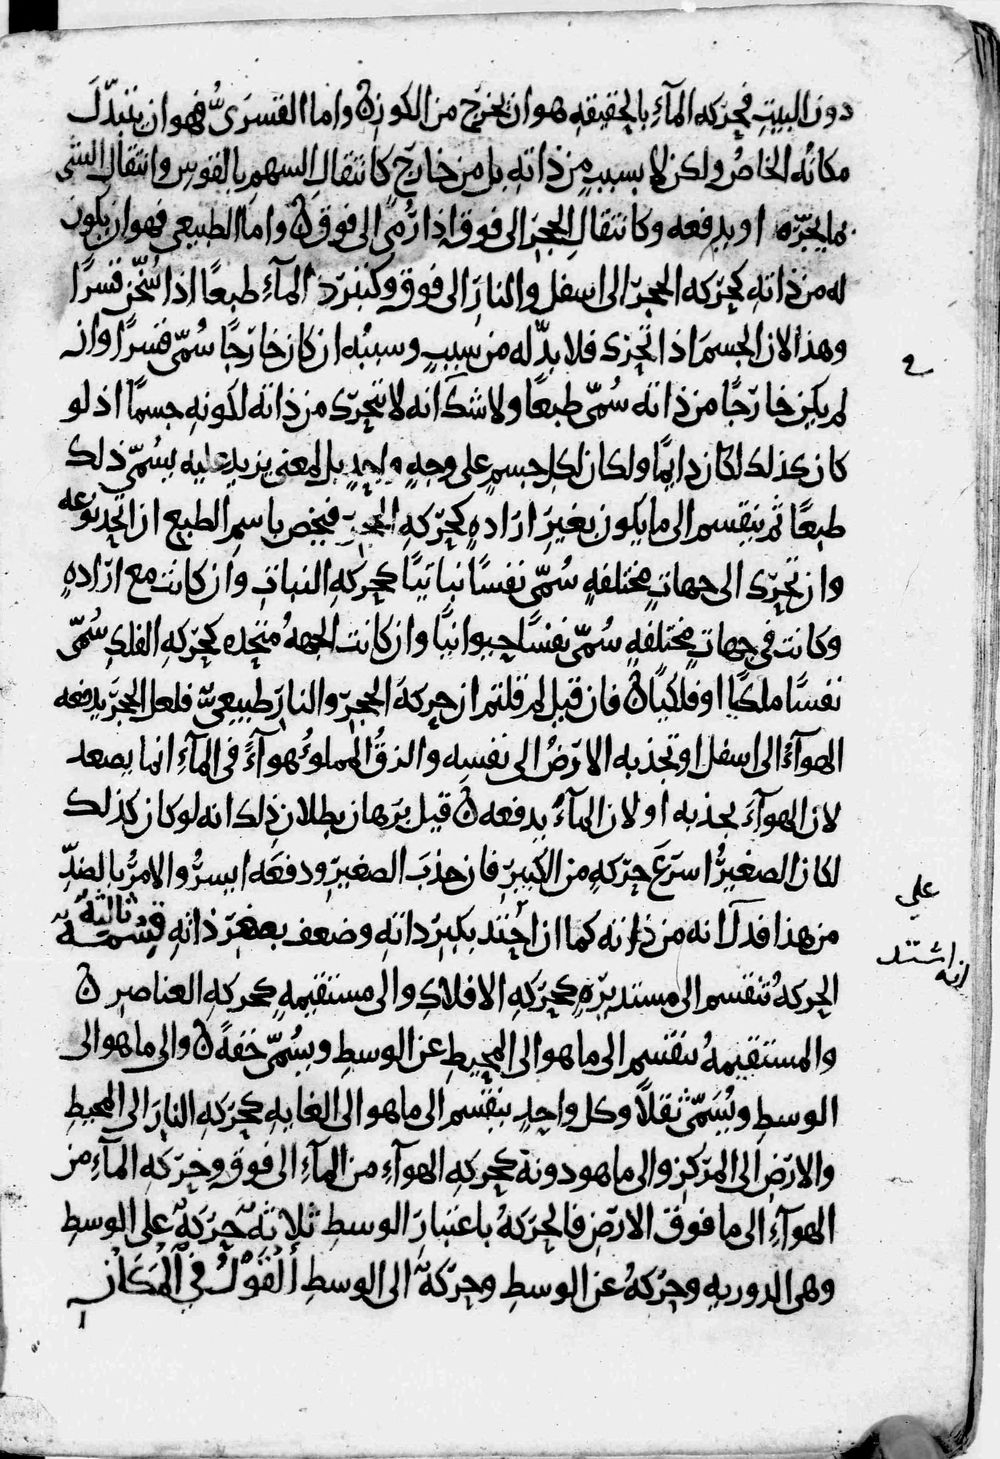 دون البيت فحركه المآء بالحقيقه هو ان يخرج من الكوزن واما القسرىُّ فهو ان تتبدّلَ
مكانُه الخاصُ ولكن لا بسببٍ من ذاته بل من خارج كانتقال السهم بالقوس وانتقال الشى
بما يجرّه او يدفعه وكانتقال الحجر الى فوق اذا رُمى الى فوق ن واما الطبيعى فهو ان يكون
له من ذاته كحركه الحجر الى اسفل والنار الى فوق وكتبرّد المآء طبعًا اذا سُخّن قسرًا
وهذا لان الجسم اذا تحرك فلا بدّ له من سببٍ وسببُه ان كان خارجًا سُمّى قسرًا وان
لم يكن خارجًا من ذاته سُمّى طبعًا ولا شك انه لا يتحرك من ذاته لكونه جسمًا اذ لو
كان كذلك لكان دايمًا ولكان لكل جسم على وجهٍ واحدٍ بل لمعنى يزيد عليه يسُمّى ذلك
طبعًا ثم ينقسم الى ما يكون بغير ارادهٍ كحركه الحجر فيخص باسم الطبع ان اتحد نوعه
وان تحرك الى جهاتٍ مختلفهٍ سُمّى نفسًا نباتيًا كحركه النبات وان كانت مع ارادهٍ
وكانت فى جهاتٍ مختلفهٍ سُمّى نفسًا حيوانيًا وان كانت الجههُ متحده كحركه الفلك سُمّى
نفسًا ملكيًا او فلكيًا ن فان قيل لم قلتم ان حركهَ الحجر والنار طبيعىٌّ فلعل الحجر يدفعه
الهوآءُ الى اسفل او تجذبه الارضُ الى نفسه والزقُّ المملوءُ هوآءً فى المآء انما يصعد
لان الهوآءَ يجذبه او لان المآءَ يدفعه ن قيل برهان بطلان ذلك انه لو كان كذلك
لكان الصغيرُ اسرعَ حركه من الكبير فان جذبَ الصغير ودفعَه ايسرُ والامرُ بالضدِّ
من هذا فدلّ انه من ذاته كما ان اشتد بكبر ذاته وضعف بصغر ذاته قسمه ثالثهٌ
الحركهُ تنقسم الى مستديرهٍ كحركه الافلاك والى مستقيمهٍ كحركه العناصر ن
والمستقيمهُ تنقسم الى ما هو الى المحيط عن الوسط ويسُمّى خفهً ن والى ما هو الى
الوسط ويُسَمّى ثقلًا وكل واحدٍ ينقسم الى ما هو الى الغايه كحركه النار الى المحيط
والارض الى المركز والى ما هو دونه كحركه الهوآء من المآء الى فوق وحركه المآء من
الهوآء الى ما فوق الارض فالحركهُ باعتبار الوسط ثلاثهٌ حركهٌ على الوسط
وهى الدوريه وحركهٌ عن الوسط وحركهٌ الى الوسط اَلْقَوْلُ فِى اَلْمَكَانِ
على
انه اشتد